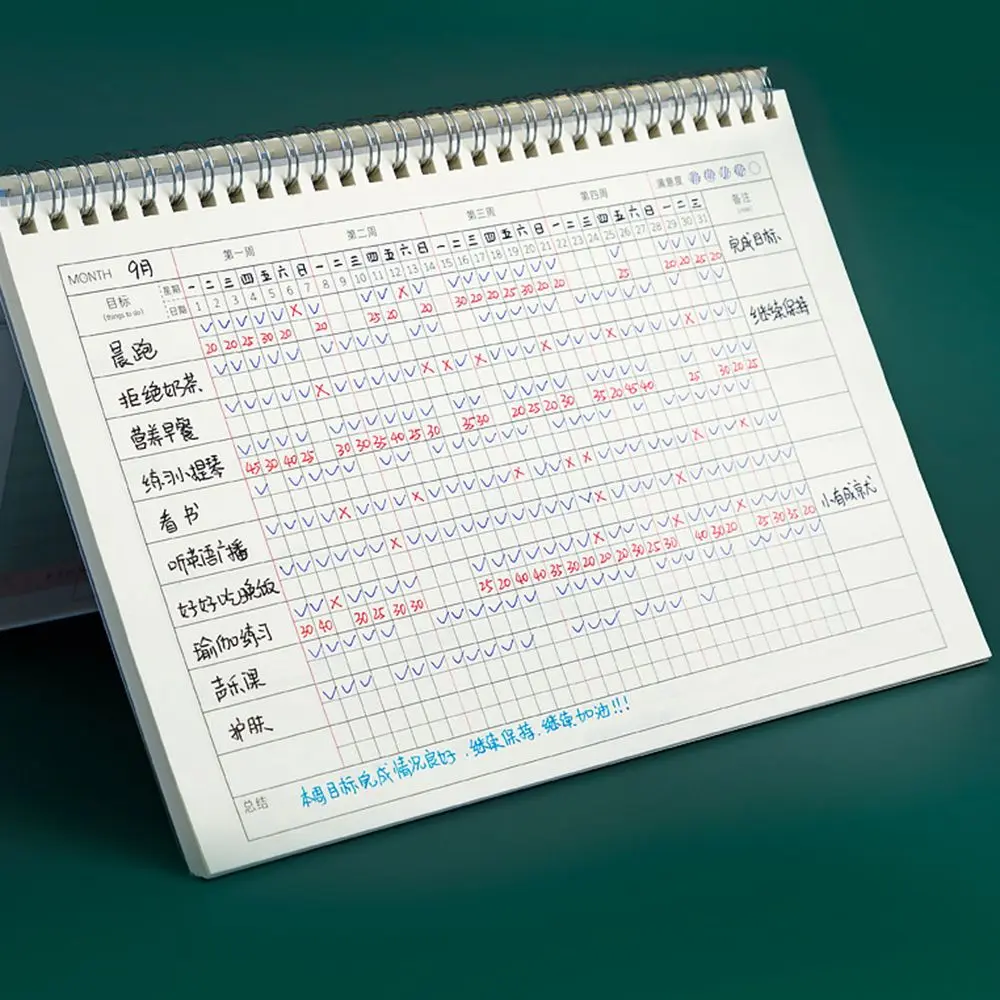 第一周 第二周 第三周 第四周 满意度 备注
MONTH 9月
目标 星期 一 二 三 四 五 六 日 一 二 三 四 五 六 日 一 二 三 四 五 六 日 一 二 三 四 五 六 日 一 二 三
(things to do) 日期 1 2 3 4 5 6 7 8 9 10 11 12 13 14 15 16 17 18 19 20 21 22 23 24 25 26 27 28 29 30 31
晨跑 完成目标
20 20 25 30 20 20 25 20 20 30 20 20 25 30 20 20 25 20 20 25 20
拒绝奶茶 继续保持
营养早餐
练习小提琴
45 30 40 25 30 30 35 40 25 30 35 30 20 25 20 30 35 20 45 40 25 30 20 25
看书
听英语广播
好好吃晚饭 小有成就
瑜伽练习
30 40 30 25 30 30 25 20 40 40 35 30 20 20 20 30 25 30 40 30 20 25 30 35 20
声乐课
护肤
总结 本周目标完成情况良好,继续保持,继续加油!!!